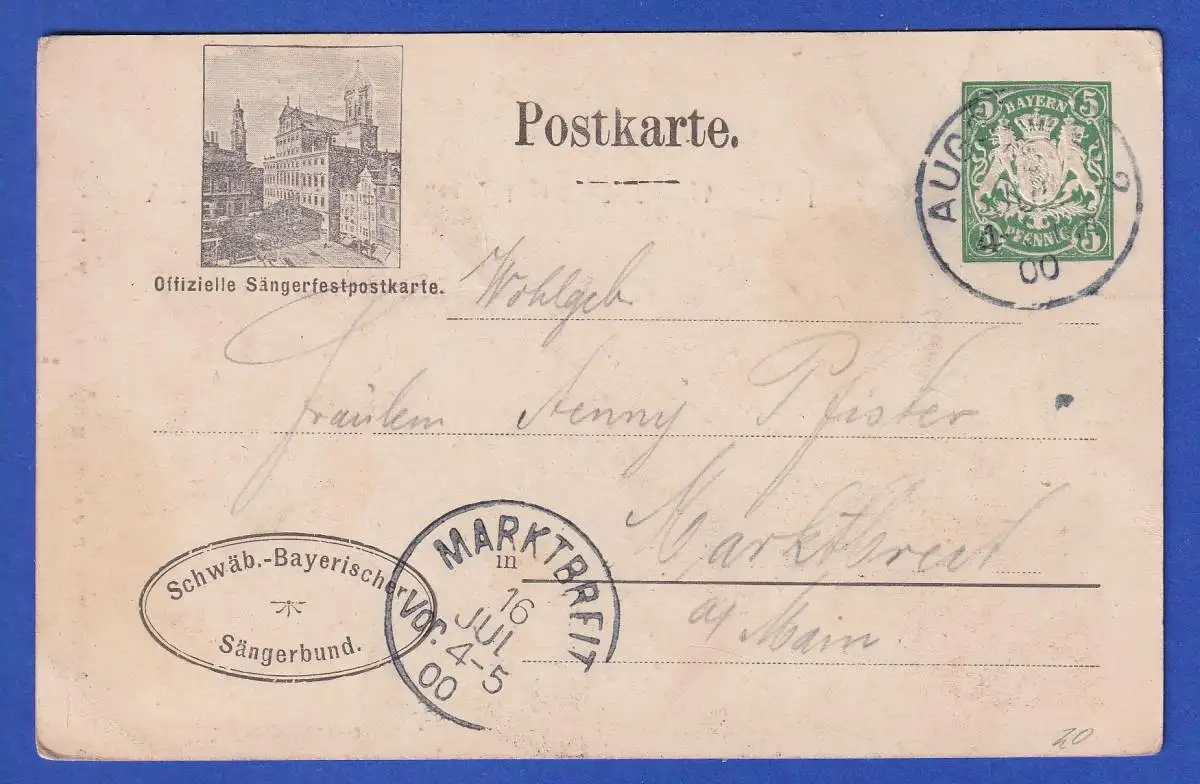 Postkarte.
5 BAYERN 5
5 PFENNIG 5
AUG 2
4-
00
Offizielle Sängerfestpostkarte.
Wohlgeb
Fräulein Jenny Pfister
Marktbreit
a/ Main.
in
MARKTBREIT
16
JUL
Vor. 4-5
00
Schwäb.-Bayerischer
Sängerbund.
20